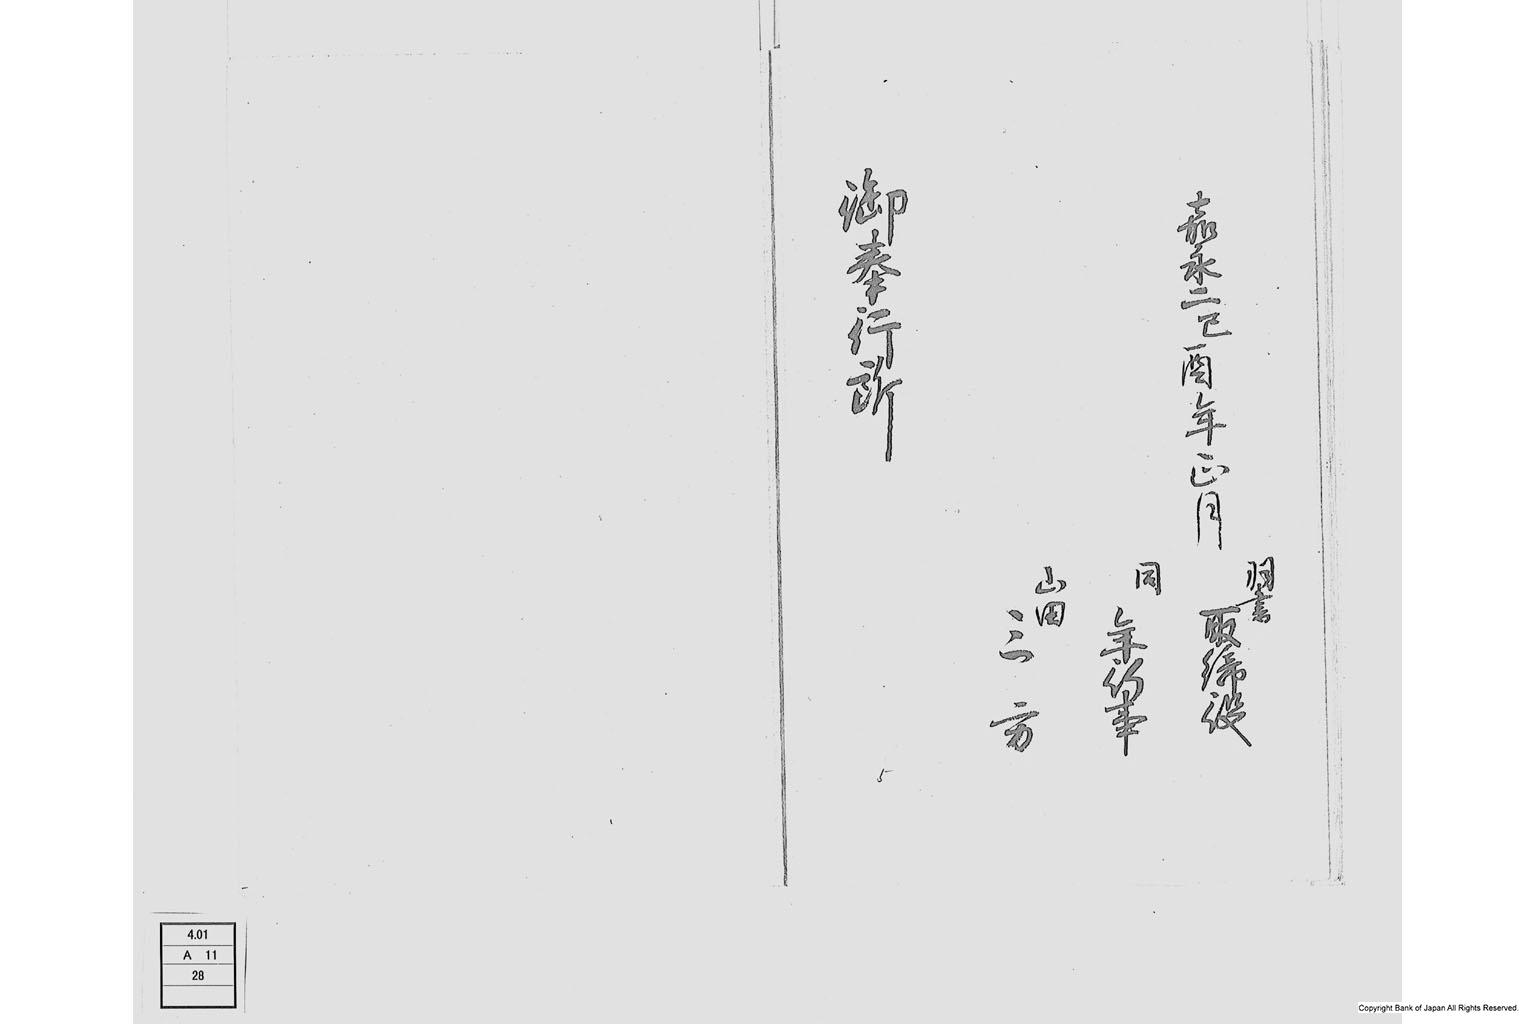 嘉永二己酉年正月
羽書
取締役
同
年行事
山田
三方
御奉行所
5
4.01
A 11
28
Copyright Bank of Japan All Rights Reserved.